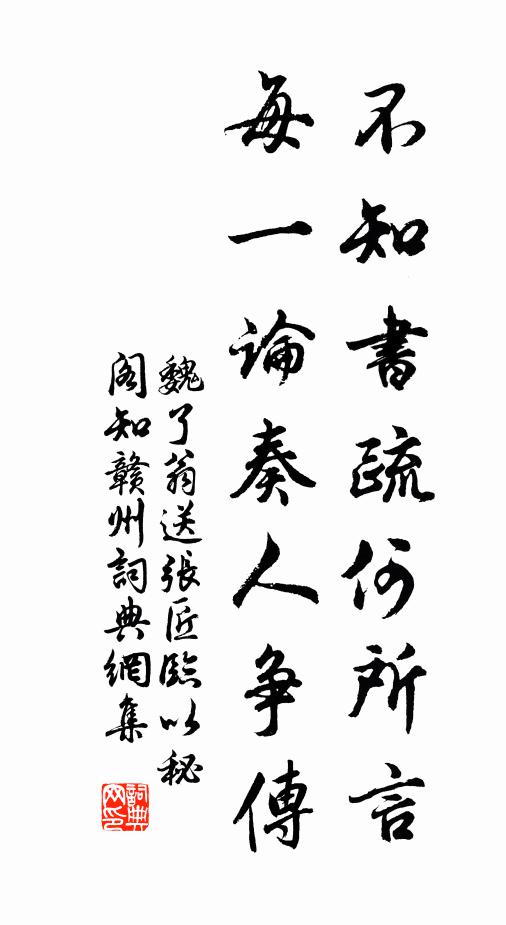 不知書疏何所言
每一論奏人争傳
魏了翁送張匠臨以秘
閣知贛州詞典網集
詞典网印